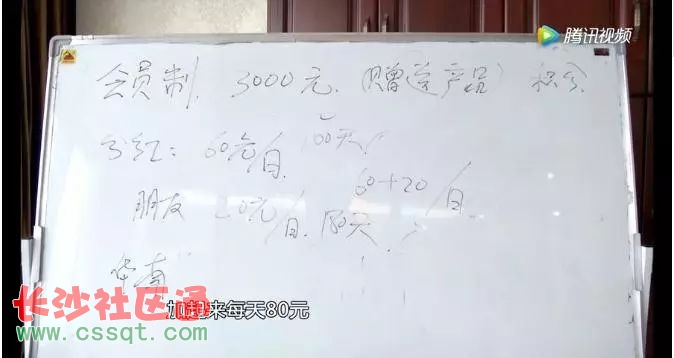 腾讯视频
会员制 3000元.(赠送产品) 积分
分红: 60元/日 100天
60+20/日
朋友 20元/日.
华南
加起来每天80元
长沙社区通
www.cssqt.com